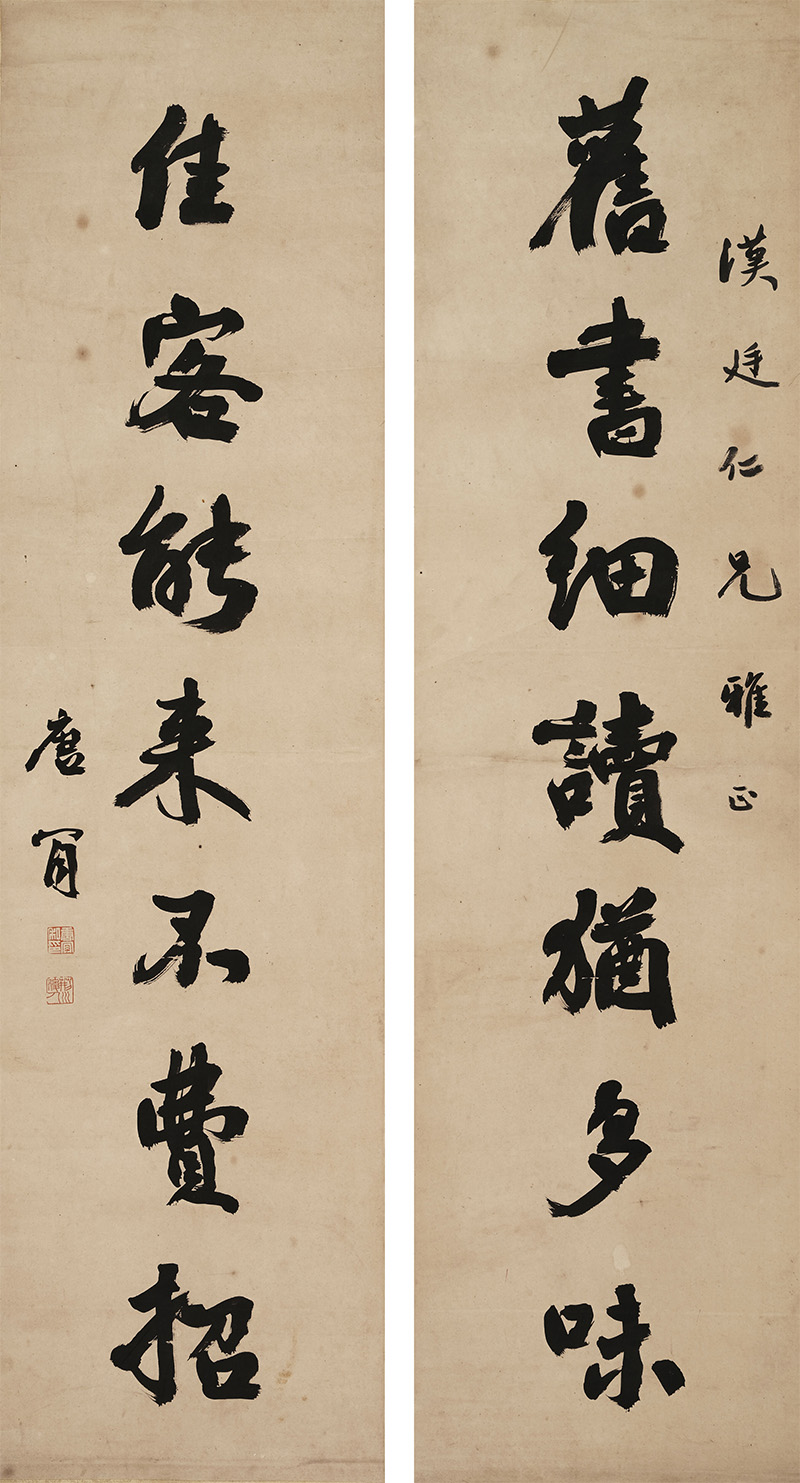 漢廷仁兄雅正
舊書細讀猶多味
佳客能來不費招
唐